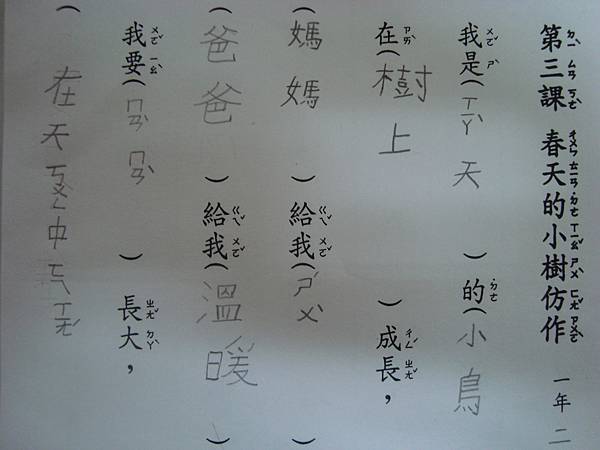 第三課 春天的小樹仿作 一年 二
我是(ㄒㄧㄚˋ天)的(小鳥
在(樹上)成長，
(媽媽)給我(ㄕˊㄨˋ)
(爸爸)給我(溫暖)
我要(ㄇㄢˋㄇㄢˋ)長大，
(在天ㄎㄨㄥ中ㄈㄟ